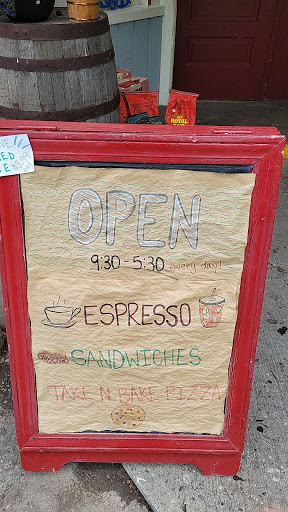 OPEN
9:30 - 5:30 every day!
ESPRESSO
SANDWICHES
TAKE N BAKE PIZZA
ROYAL